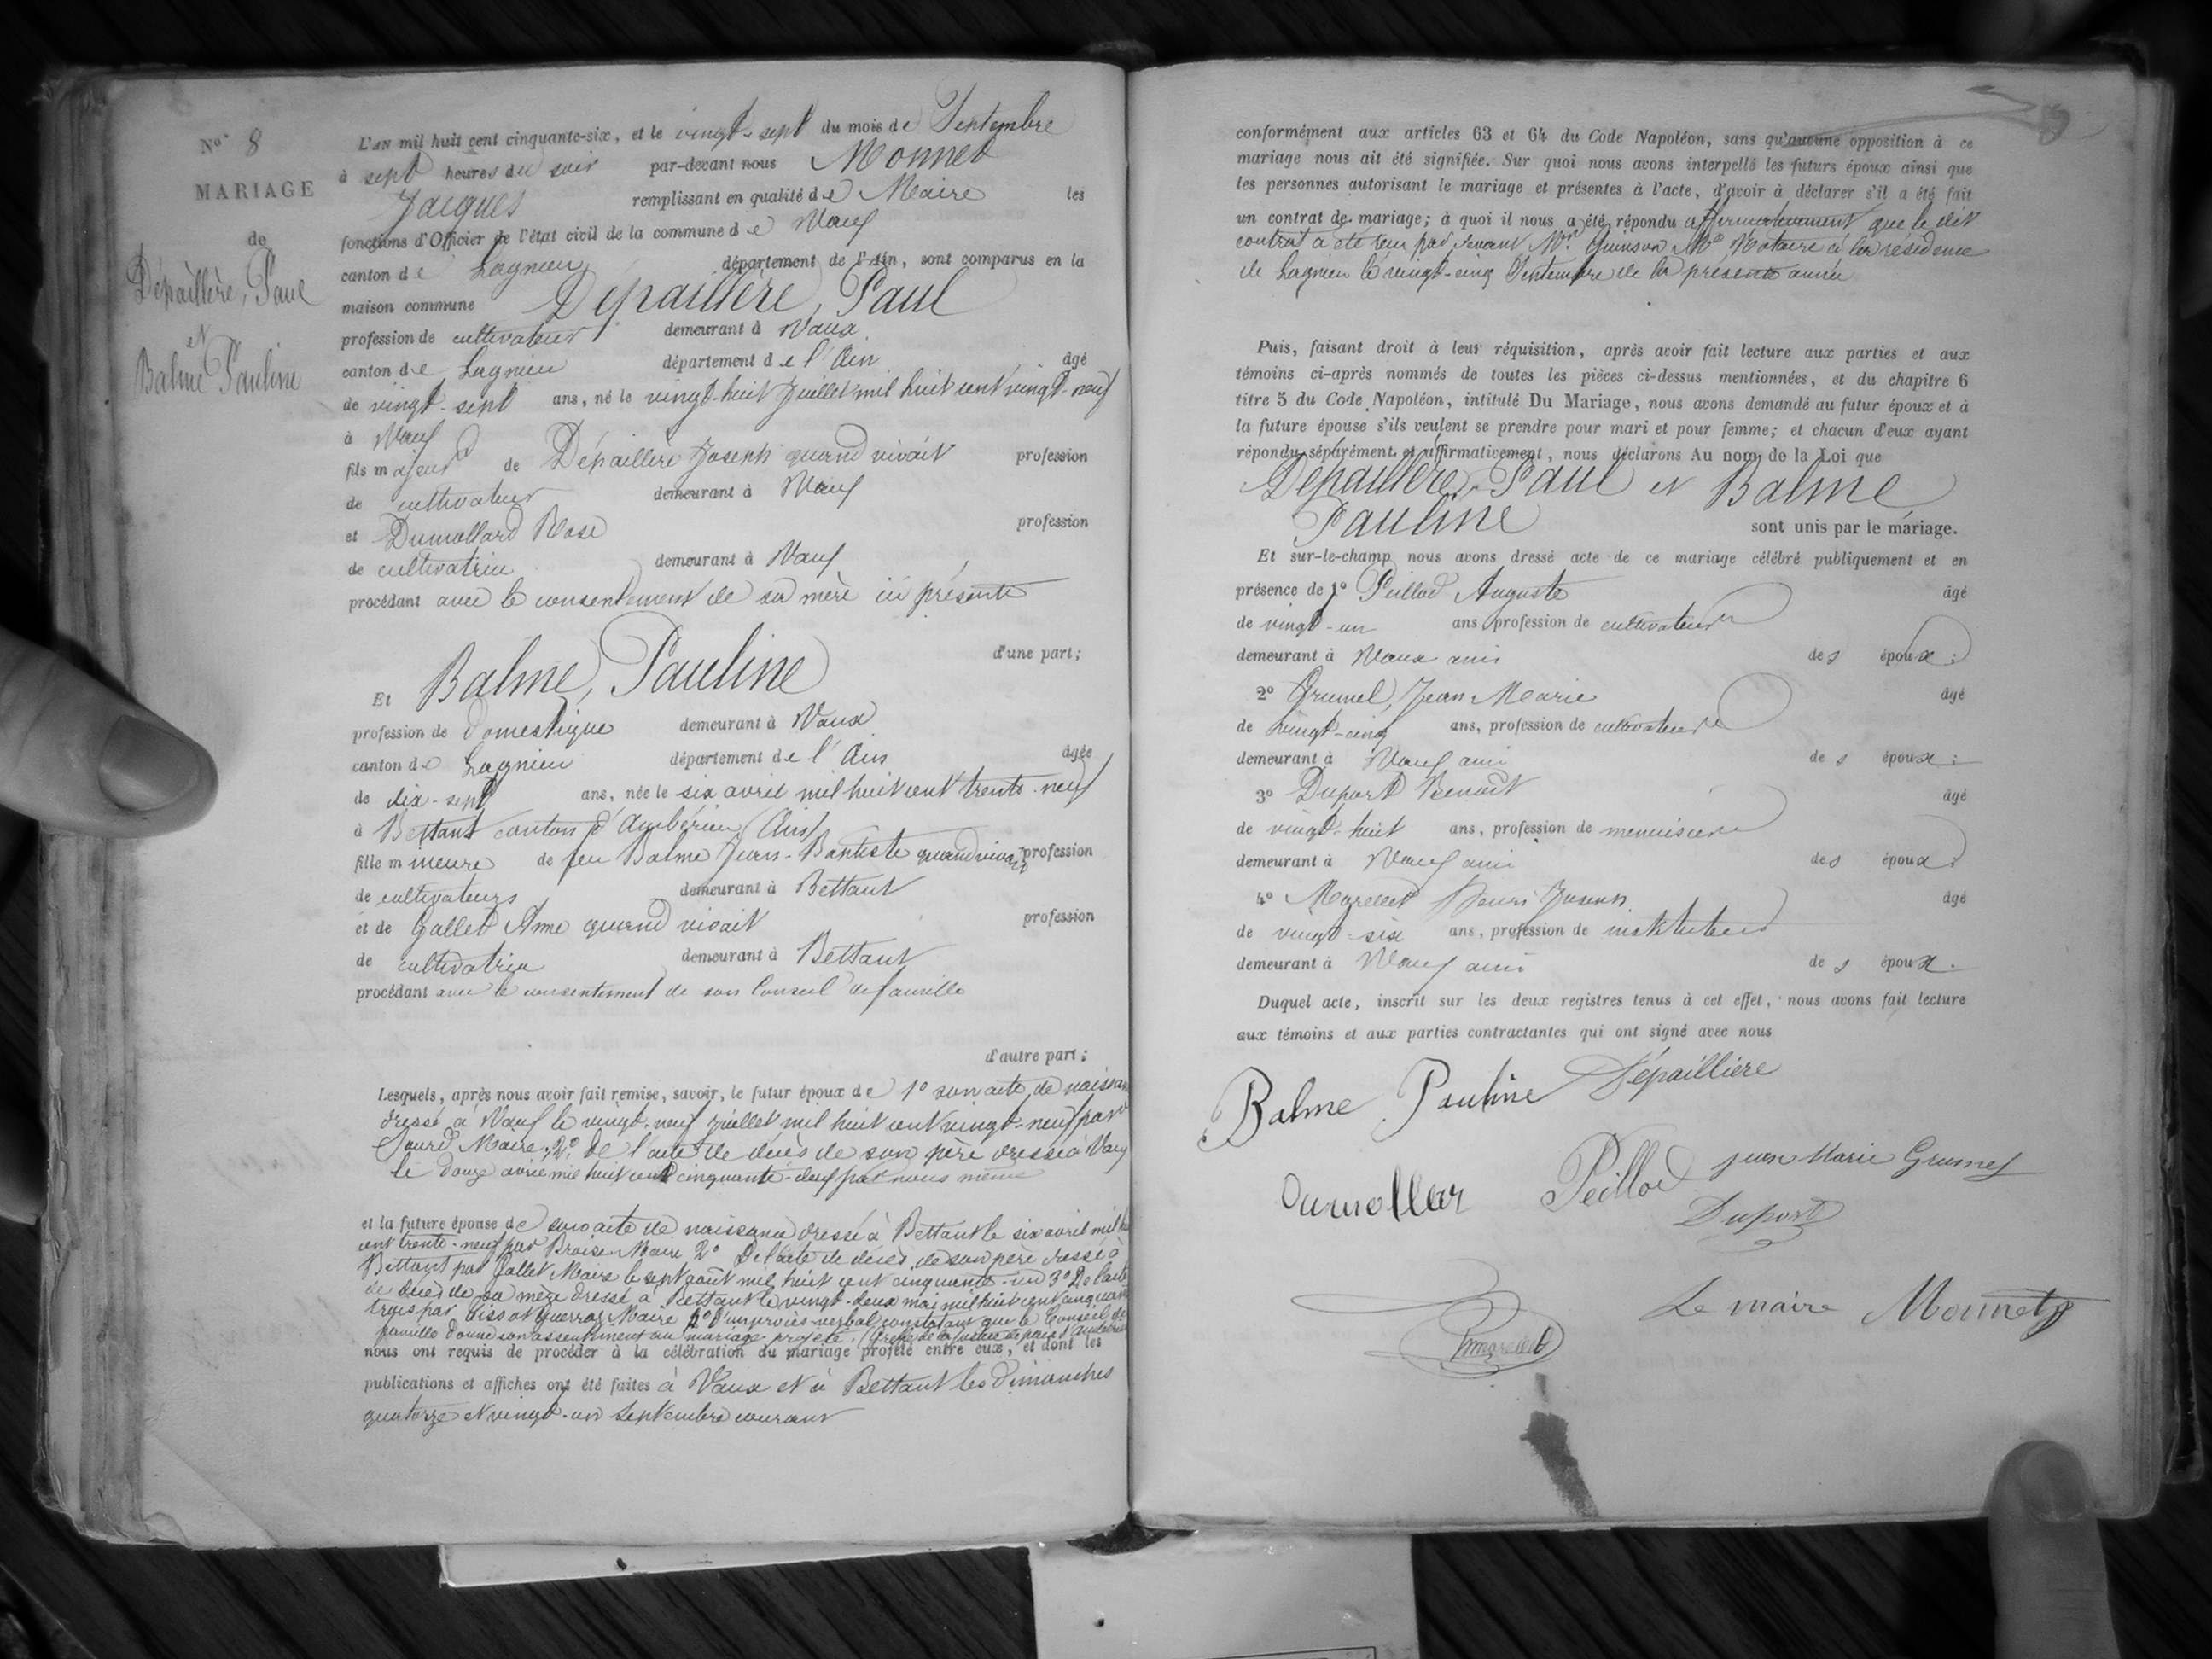 N° 8
MARIAGE
de
Dépaillère, Paul
et
Balme Pauline
L'AN mil huit cent cinquante-six, et le vingt-sept du mois de Septembre
à sept heures du soir par-devant nous Monnet
Jacques remplissant en qualité de Maire les
fonctions d'Officier de l'état civil de la commune de Vaux
canton de Lagnieu département de l'Ain, sont comparus en la
maison commune Dépaillère, Paul
profession de cultivateur demeurant à Vaux
canton de Lagnieu département de l'Ain âgé
de vingt-sept ans, né le vingt-huit Juillet mil huit cent vingt-neuf
à Vaux
fils majeur de Dépaillère Joseph quand vivait profession
de cultivateur demeurant à Vaux
et Dumollard Rose profession
de cultivatrice demeurant à Vaux
procédant avec le consentement de sa mère ici présente
d'une part;
Et Balme, Pauline
profession de domestique demeurant à Vaux
canton de Lagnieu département de l'Ain âgée
de dix-sept ans, née le six avril mil huit cent trente-neuf
à Bettant canton d'Ambérieu (Ain)
fille mineure de feu Balme Jean-Baptiste quand vivait profession
de cultivateurs demeurant à Bettant
et de Gallet Anne quand vivait profession
de cultivatrice demeurant à Bettant
procédant avec le consentement de son Conseil de famille
d'autre part;
Lesquels, après nous avoir fait remise, savoir, le futur époux de 1° son acte de naissan
dressé à Vaux le vingt-neuf juillet mil huit cent vingt-neuf par
Maire, 2° De l'acte de décès de son père dressé à Vaux
le douze avril mil huit cent cinquante-deux par nous même
et la future épouse de son acte de naissance dressé à Bettant le six avril mil h
cent trente-neuf par Maire 2° De l'acte de décès de son père dressé à
Bettant par Gallet Maire le sept août mil huit cent cinquante-un 3° De l'acte
de décès de sa mère dressé à Bettant le vingt-deux mai mil huit cent cinquan
trois par Maire 4° D'un procès-verbal constatant que le Conseil de
famille donne son assentiment au mariage projeté. (Greffe de la justice de paix d'
nous ont requis de procéder à la célébration du mariage projeté entre eux, et dont les
publications et affiches ont été faites à Vaux et à Bettant les dimanches
quatorze et vingt-un Septembre courant
conformément aux articles 63 et 64 du Code Napoléon, sans qu'aucune opposition à ce
mariage nous ait été signifiée. Sur quoi nous avons interpellé les futurs époux ainsi que
les personnes autorisant le mariage et présentes à l'acte, d'avoir à déclarer s'il a été fait
un contrat de mariage; à quoi il nous a été répondu affirmativement que le dit
contrat a été reçu par devant Quinson Notaire à la résidence
de Lagnieu le vingt-cinq Septembre de la présente année
Puis, faisant droit à leur réquisition, après avoir fait lecture aux parties et aux
témoins ci-après nommés de toutes les pièces ci-dessus mentionnées, et du chapitre 6
titre 5 du Code Napoléon, intitulé Du Mariage, nous avons demandé au futur époux et à
la future épouse s'ils veulent se prendre pour mari et pour femme; et chacun d'eux ayant
répondu séparément et affirmativement, nous déclarons Au nom de la Loi que
Dépaillère, Paul et Balme
Pauline sont unis par le mariage.
Et sur-le-champ nous avons dressé acte de ce mariage célébré publiquement et en
présence de 1° Peillod Auguste âgé
de vingt-un ans, profession de cultivateur
demeurant à Vaux ami des époux;
2° Grumel, Jean Marie âgé
de vingt-cinq ans, profession de cultivateur
demeurant à Vaux ami des époux;
3° Duport Benoît âgé
de vingt-huit ans, profession de menuisier
demeurant à Vaux ami des époux;
4° Henri Joseph âgé
de vingt-six ans, profession de instituteur
demeurant à Vaux ami des époux.
Duquel acte, inscrit sur les deux registres tenus à cet effet, nous avons fait lecture
aux témoins et aux parties contractantes qui ont signé avec nous
Balme Pauline Dépaillière
Dumollar Peillod jean Marie Grumel
Duport
Le maire Monnet